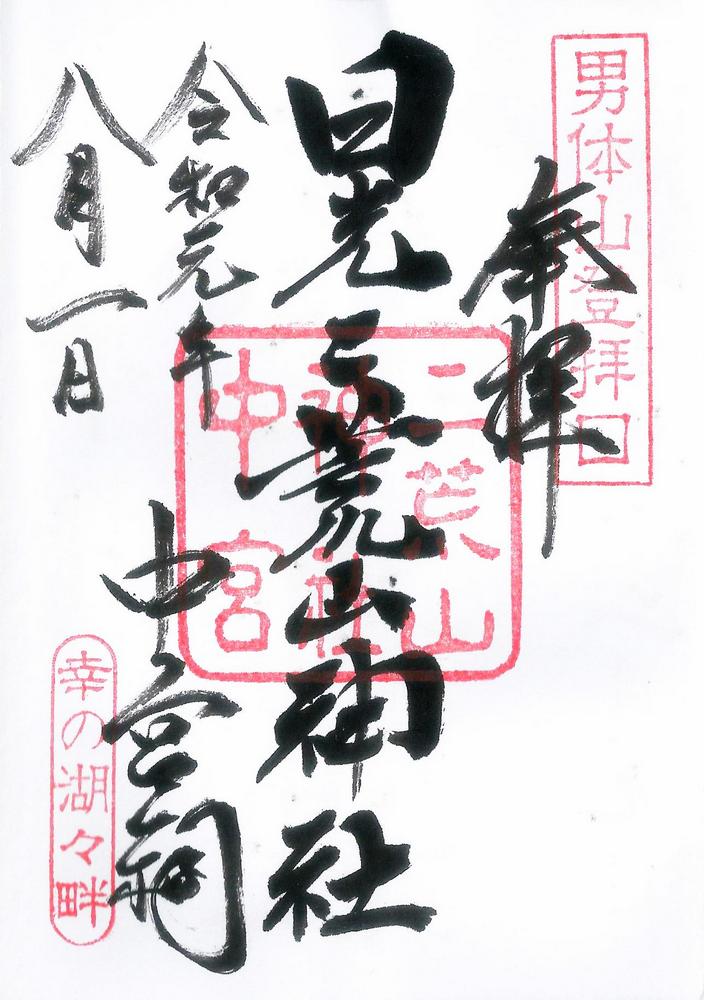 男体山登拝口
奉拝
日光二荒山神社
二荒山
神社
中宮
中宮祠
令和元年
八月一日
幸の湖々畔